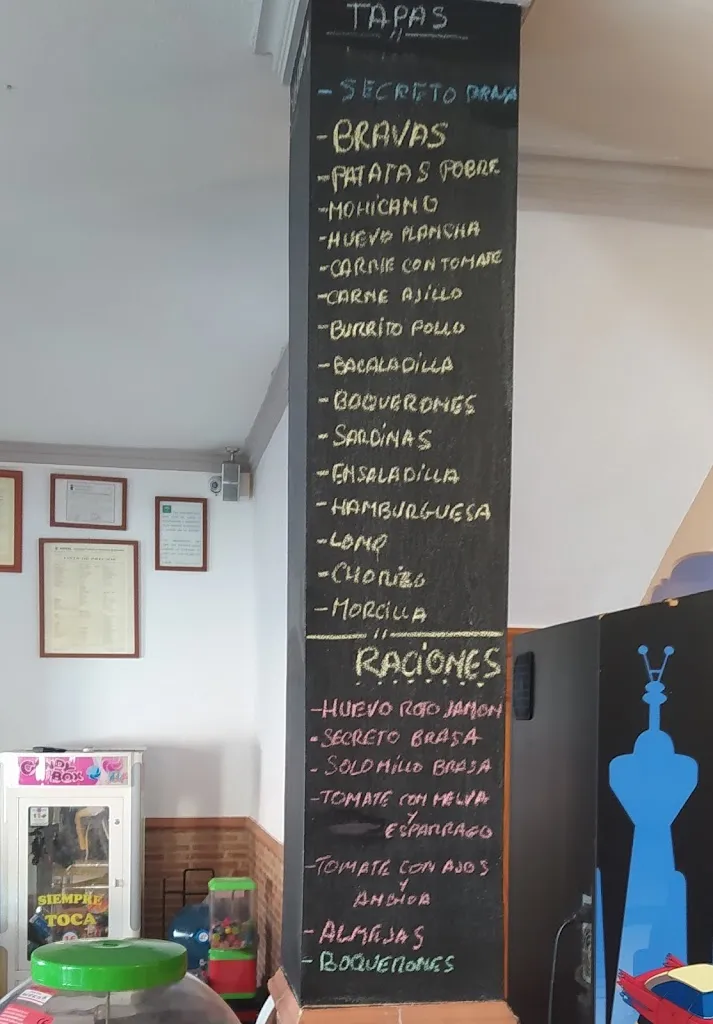 TAPAS
- SECRETO BRASA
- BRAVAS
- PATATAS POBRE
- MOHICANO
- HUEVO PLANCHA
- CARNE CON TOMATE
- CARNE AJILLO
- BURRITO POLLO
- BACALADILLA
- BOQUERONES
- SARDINAS
- ENSALADILLA
- HAMBURGUESA
- LOMO
- CHORIZO
- MORCILLA
RACIONES
- HUEVO ROTO JAMON
- SECRETO BRASA
- SOLOMILLO BRASA
- TOMATE CON MELVA
Y
ESPARRAGO
- TOMATE CON AJOS
Y
- ALMEJAS
- BOQUERONES
CANDY
BOX
SIEMPRE
TOCA